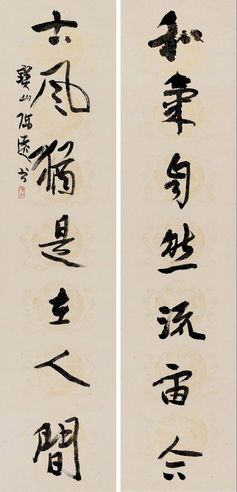 和氣自然流宙合
古風猶是在人間
寶山 書